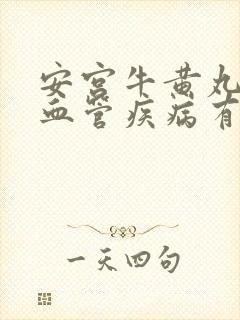 安宫牛黄丸
血管疾病有
一天四句